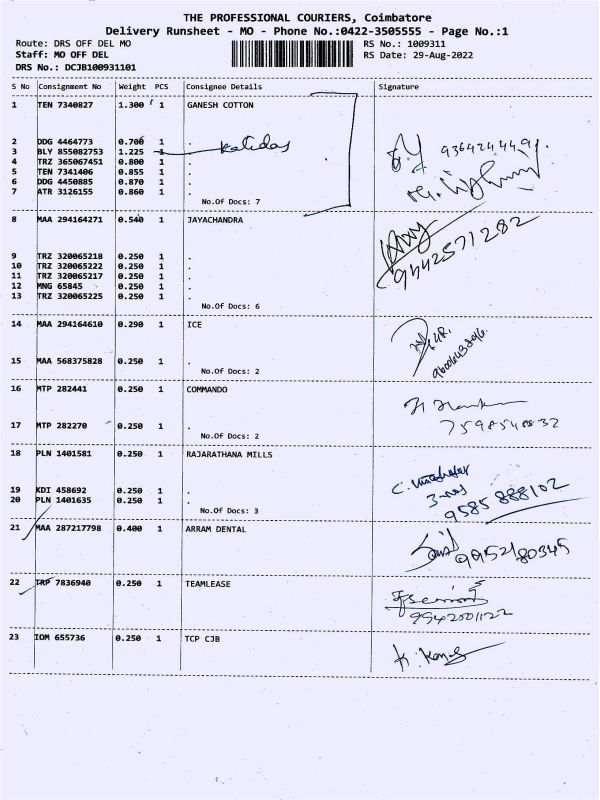 THE PROFESSIONAL COURIERS, Coimbatore
Delivery Runsheet - MO - Phone No.:0422-3505555 - Page No.:1
Route: DRS OFF DEL MO RS No.: 1009311
Staff: MO OFF DEL RS Date: 29-Aug-2022
DRS No.: DCJB100931101
S No Consignment No Weight PCS Consignee Details Signature
1 TEN 7340827 1.300 1 GANESH COTTON
2 DDG 4464773 0.700 1 .
3 BLY 855082753 1.225 1 . Kalidas
4 TRZ 365067451 0.800 1 .
5 TEN 7341406 0.855 1 .
6 DDG 4450885 0.870 1 .
7 ATR 3126155 0.860 1 .
No.Of Docs: 7
8 MAA 294164271 0.540 1 JAYACHANDRA
9442571282
9 TRZ 320065218 0.250 1 .
10 TRZ 320065222 0.250 1 .
11 TRZ 320065217 0.250 1 .
12 MNG 65845 0.250 1 .
13 TRZ 320065225 0.250 1 .
No.Of Docs: 6
14 MAA 294164610 0.290 1 ICE
15 MAA 568375828 0.250 1 .
No.Of Docs: 2
16 MTP 282441 0.250 1 COMMANDO
17 MTP 282270 0.250 1 . 7598540832
No.Of Docs: 2
18 PLN 1401581 0.250 1 RAJARATHANA MILLS
19 KDI 458692 0.250 1 .
20 PLN 1401635 0.250 1 . 9585 888102
No.Of Docs: 3
21 MAA 287217798 0.400 1 ARRAM DENTAL
9952180345
22 TRP 7836940 0.250 1 TEAMLEASE
9942001122
23 IOM 655736 0.250 1 TCP CJB